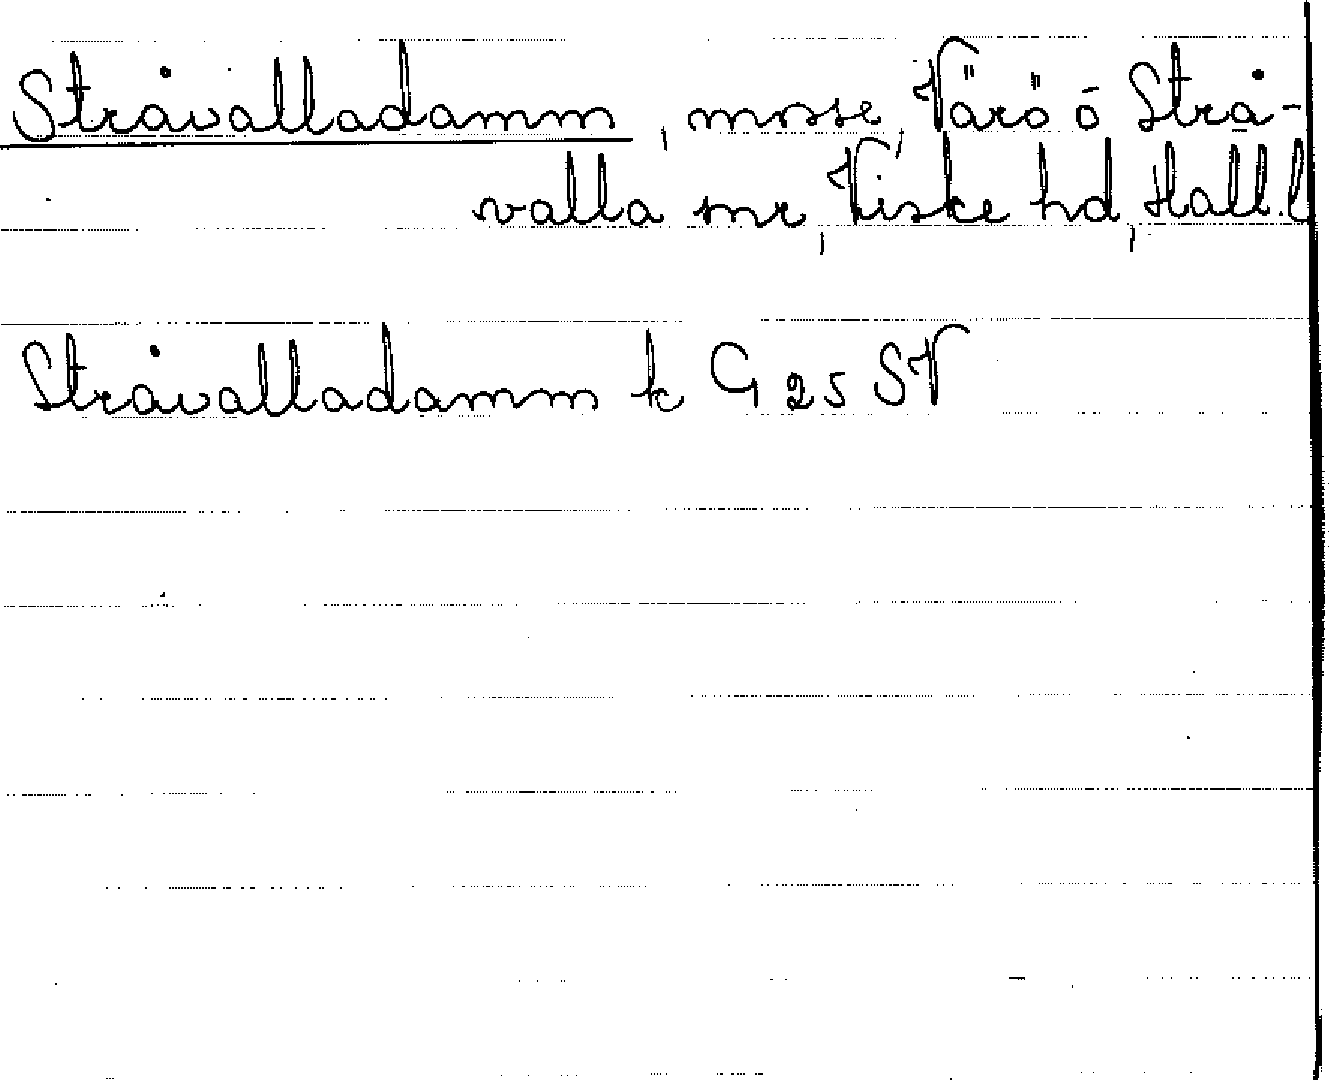 Stråvalladamm, mosse, Värö o Strå-
valla snr, Viske hd, Hall. l
Stråvalladamm k G 25 SV